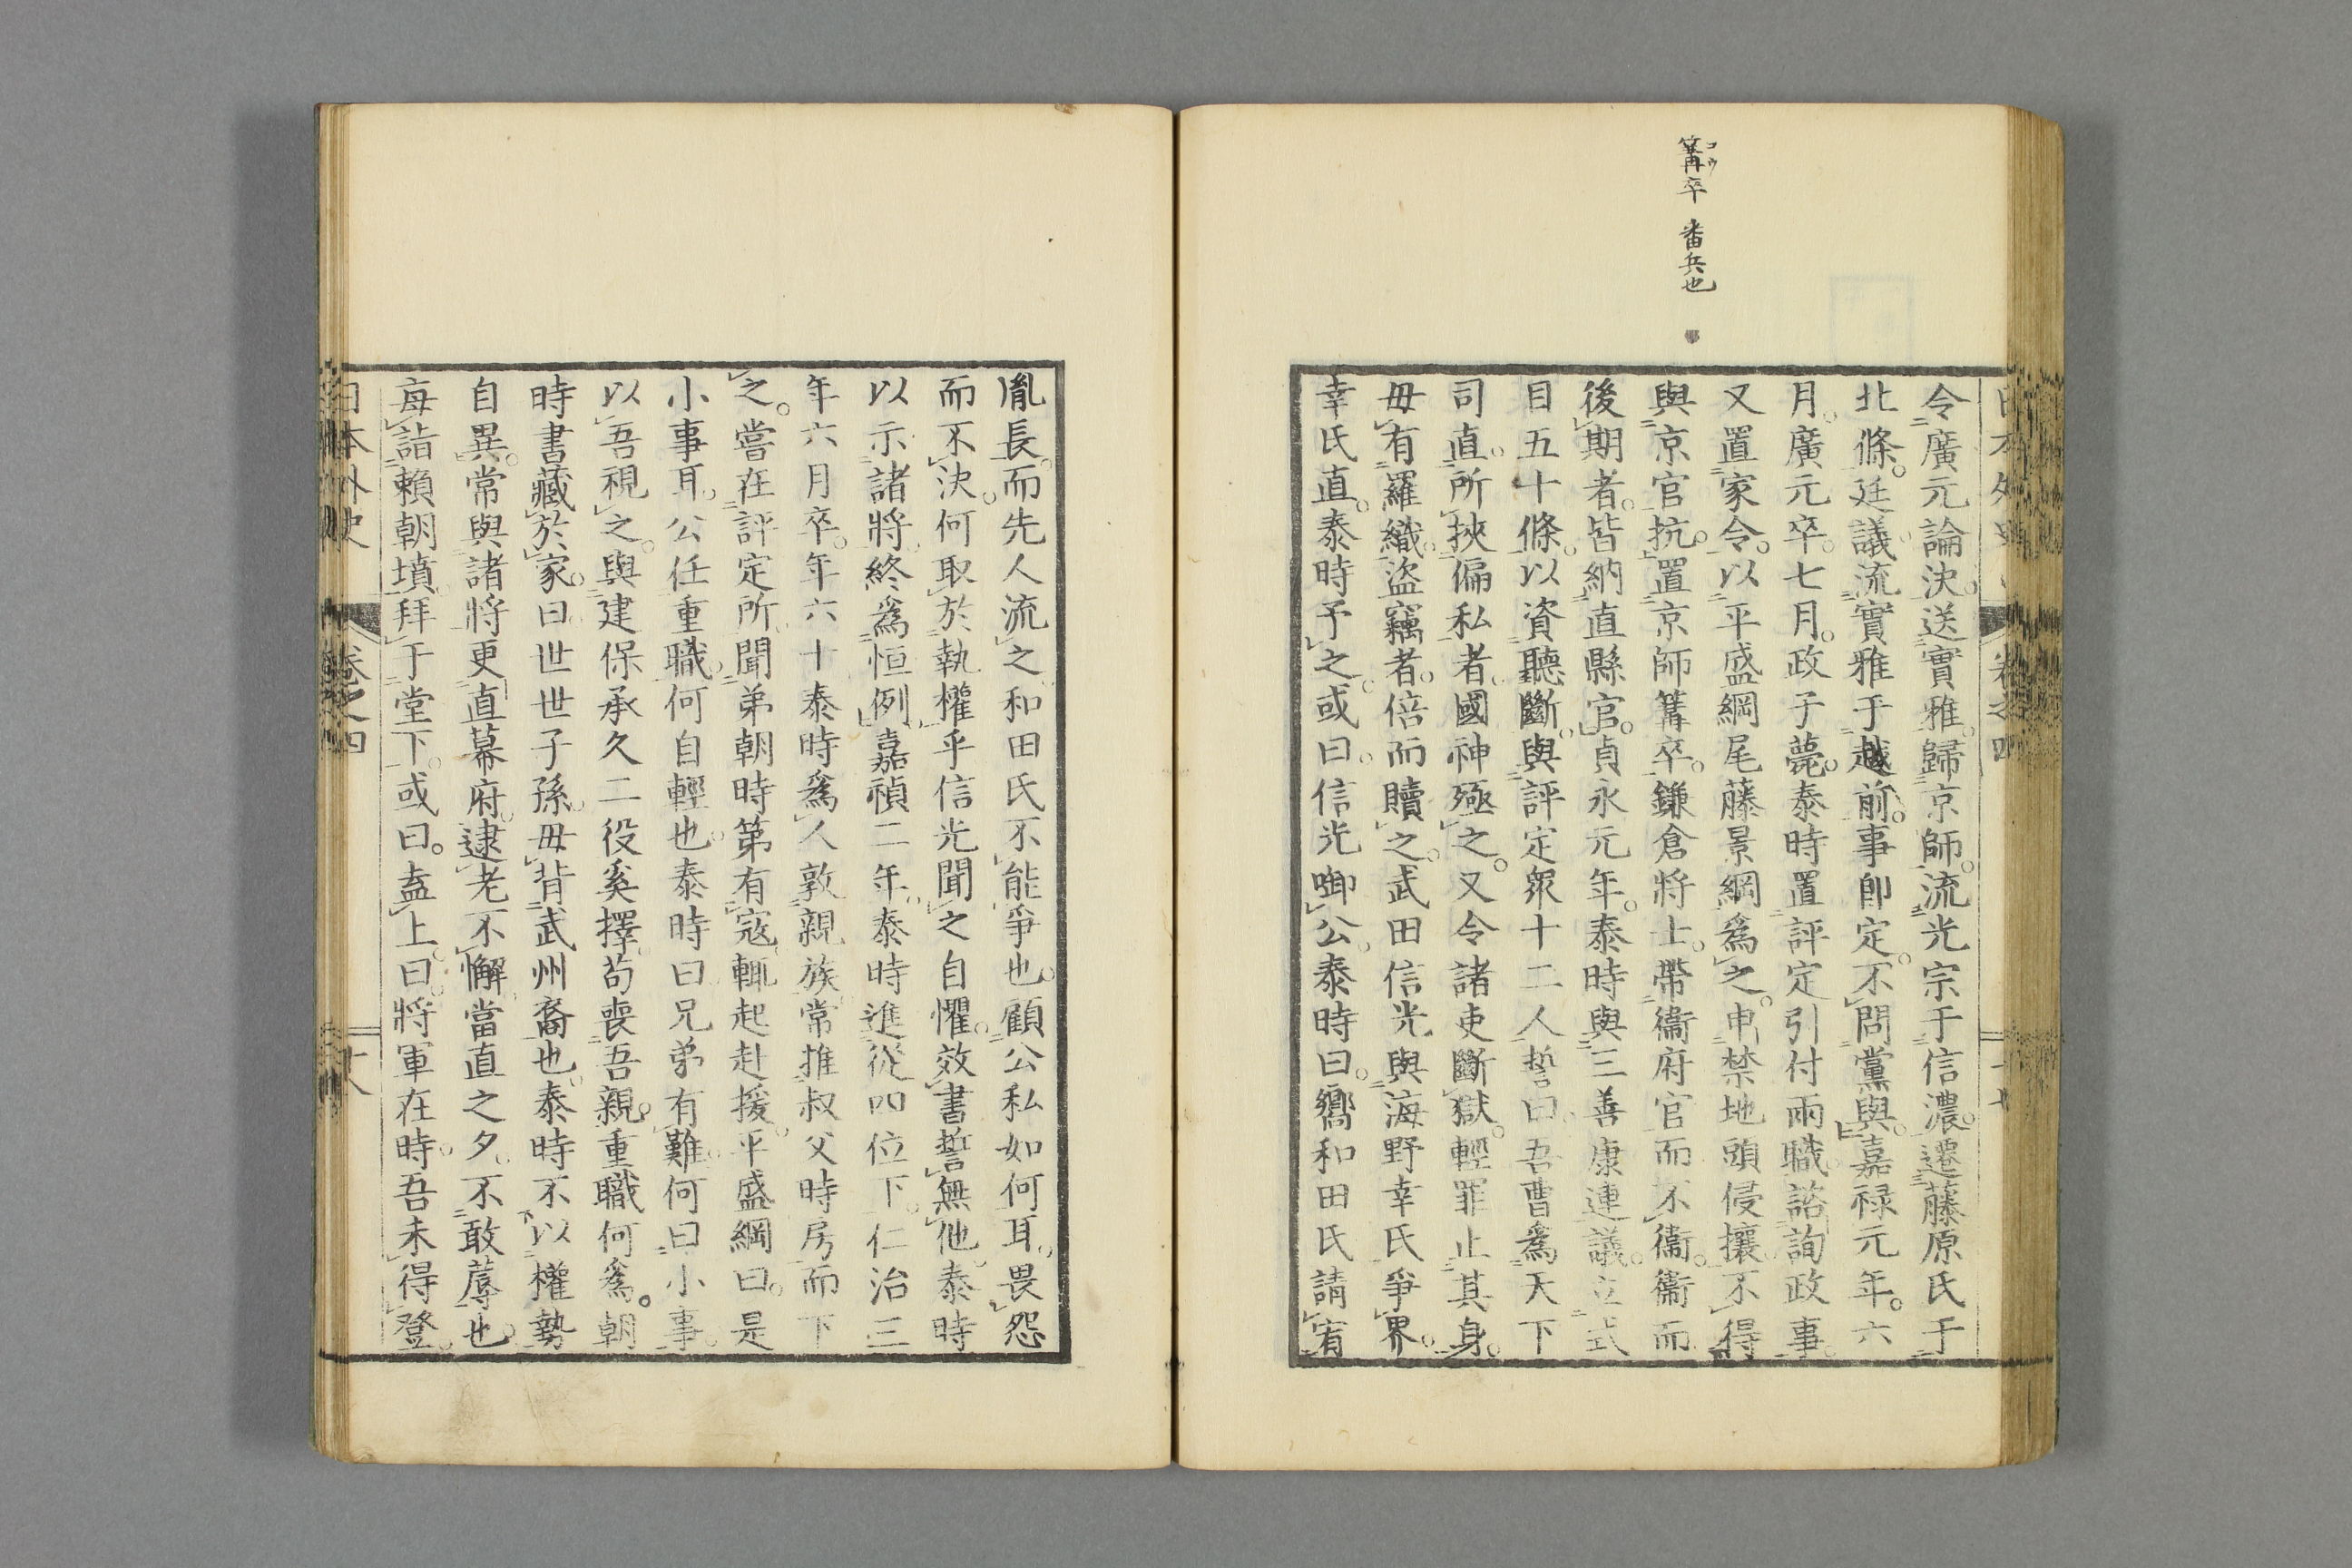 篝卒 番兵也
コウ
令廣元論決。送實雅。歸京師。流光宗于信濃。遷藤原氏于
北條。廷議流實雅于越前。事卽定。不問黨與。嘉禄元年。六
月。廣元卒。七月。政子薨。泰時置評定引付兩職。諮詢政事。
又置家令。以平盛綱尾藤景綱爲之。申禁地頭侵攘。不得
與京官抗。置京師篝卒。鎌倉將士。帶衞府官而不衞。衞而
後期者。皆納直縣官。貞永元年。泰時與三善康連議。立式
目五十條。以資聽斷。與評定衆十二人誓曰。吾曹爲天下
司直。所挾偏私者。國神殛之。又令諸吏斷獄。輕罪止其身。
毋有羅織。盜竊者。倍而贖之。武田信光與海野幸氏爭界。
幸氏直。泰時予之。或曰。信光啣公。泰時曰。嚮和田氏請宥
胤長。而先人流之。和田氏不能爭也。顧公私如何耳。畏怨
而不決。何取於執權乎。信光聞之自懼。效書誓無他。泰時
以示諸將。終爲恒例。嘉禎二年。泰時進從四位下。仁治三
年六月卒。年六十。泰時爲人敦親族。常推叔父時房而下
之。嘗在評定所。聞弟朝時第有寇。輒起赴援。平盛綱曰。是
小事耳。公任重職。何自輕也。泰時曰。兄弟有難。何曰小事。
以吾視之。與建保承久二役奚擇。苟喪吾親。重職何爲。朝
時書藏於家。曰世世子孫。毋背武州裔也。泰時不以權勢
自異。常與諸將更直幕府。逮老不懈。當直之夕。不敢蓐也。
每詣賴朝墳。拜于堂下。或曰。盍上。曰。將軍在時。吾未得登。
日本外史 卷之四 十八